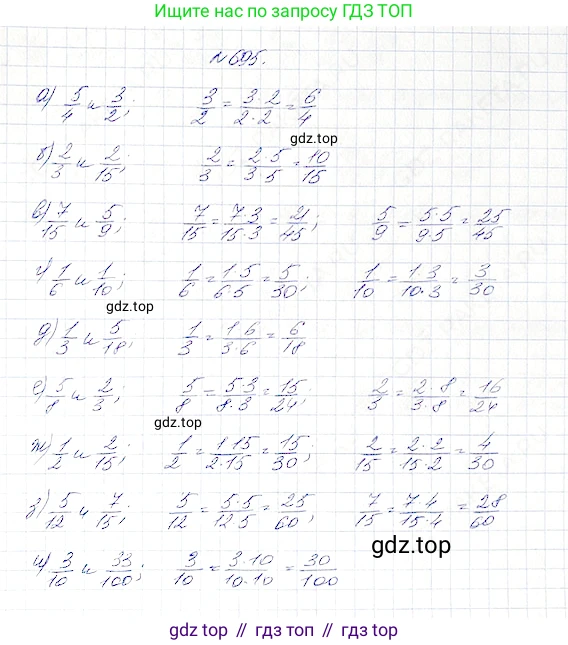 Ищите нас по запросу ГДЗ ТОП
№ 695.
а) 5/4 и 3/2; 3/2 = 3·2/2·2 = 6/4
gdz.top
б) 2/3 и 2/15; 2/3 = 2·5/3·5 = 10/15
в) 7/15 и 5/9; 7/15 = 7·3/15·3 = 21/45; 5/9 = 5·5/9·5 = 25/45
г) 1/6 и 1/10; 1/6 = 1·5/6·5 = 5/30; 1/10 = 1·3/10·3 = 3/30
gdz.top
д) 1/3 и 5/18; 1/3 = 1·6/3·6 = 6/18
е) 5/8 и 2/3; 5/8 = 5·3/8·3 = 15/24; 2/3 = 2·8/3·8 = 16/24
gdz.top
ж) 1/2 и 2/15; 1/2 = 1·15/2·15 = 15/30; 2/15 = 2·2/15·2 = 4/30
з) 5/12 и 7/15; 5/12 = 5·5/12·5 = 25/60; 7/15 = 7·4/15·4 = 28/60
gdz.top
и) 3/10 и 33/100; 3/10 = 3·10/10·10 = 30/100
gdz top // гдз топ // гдз.top